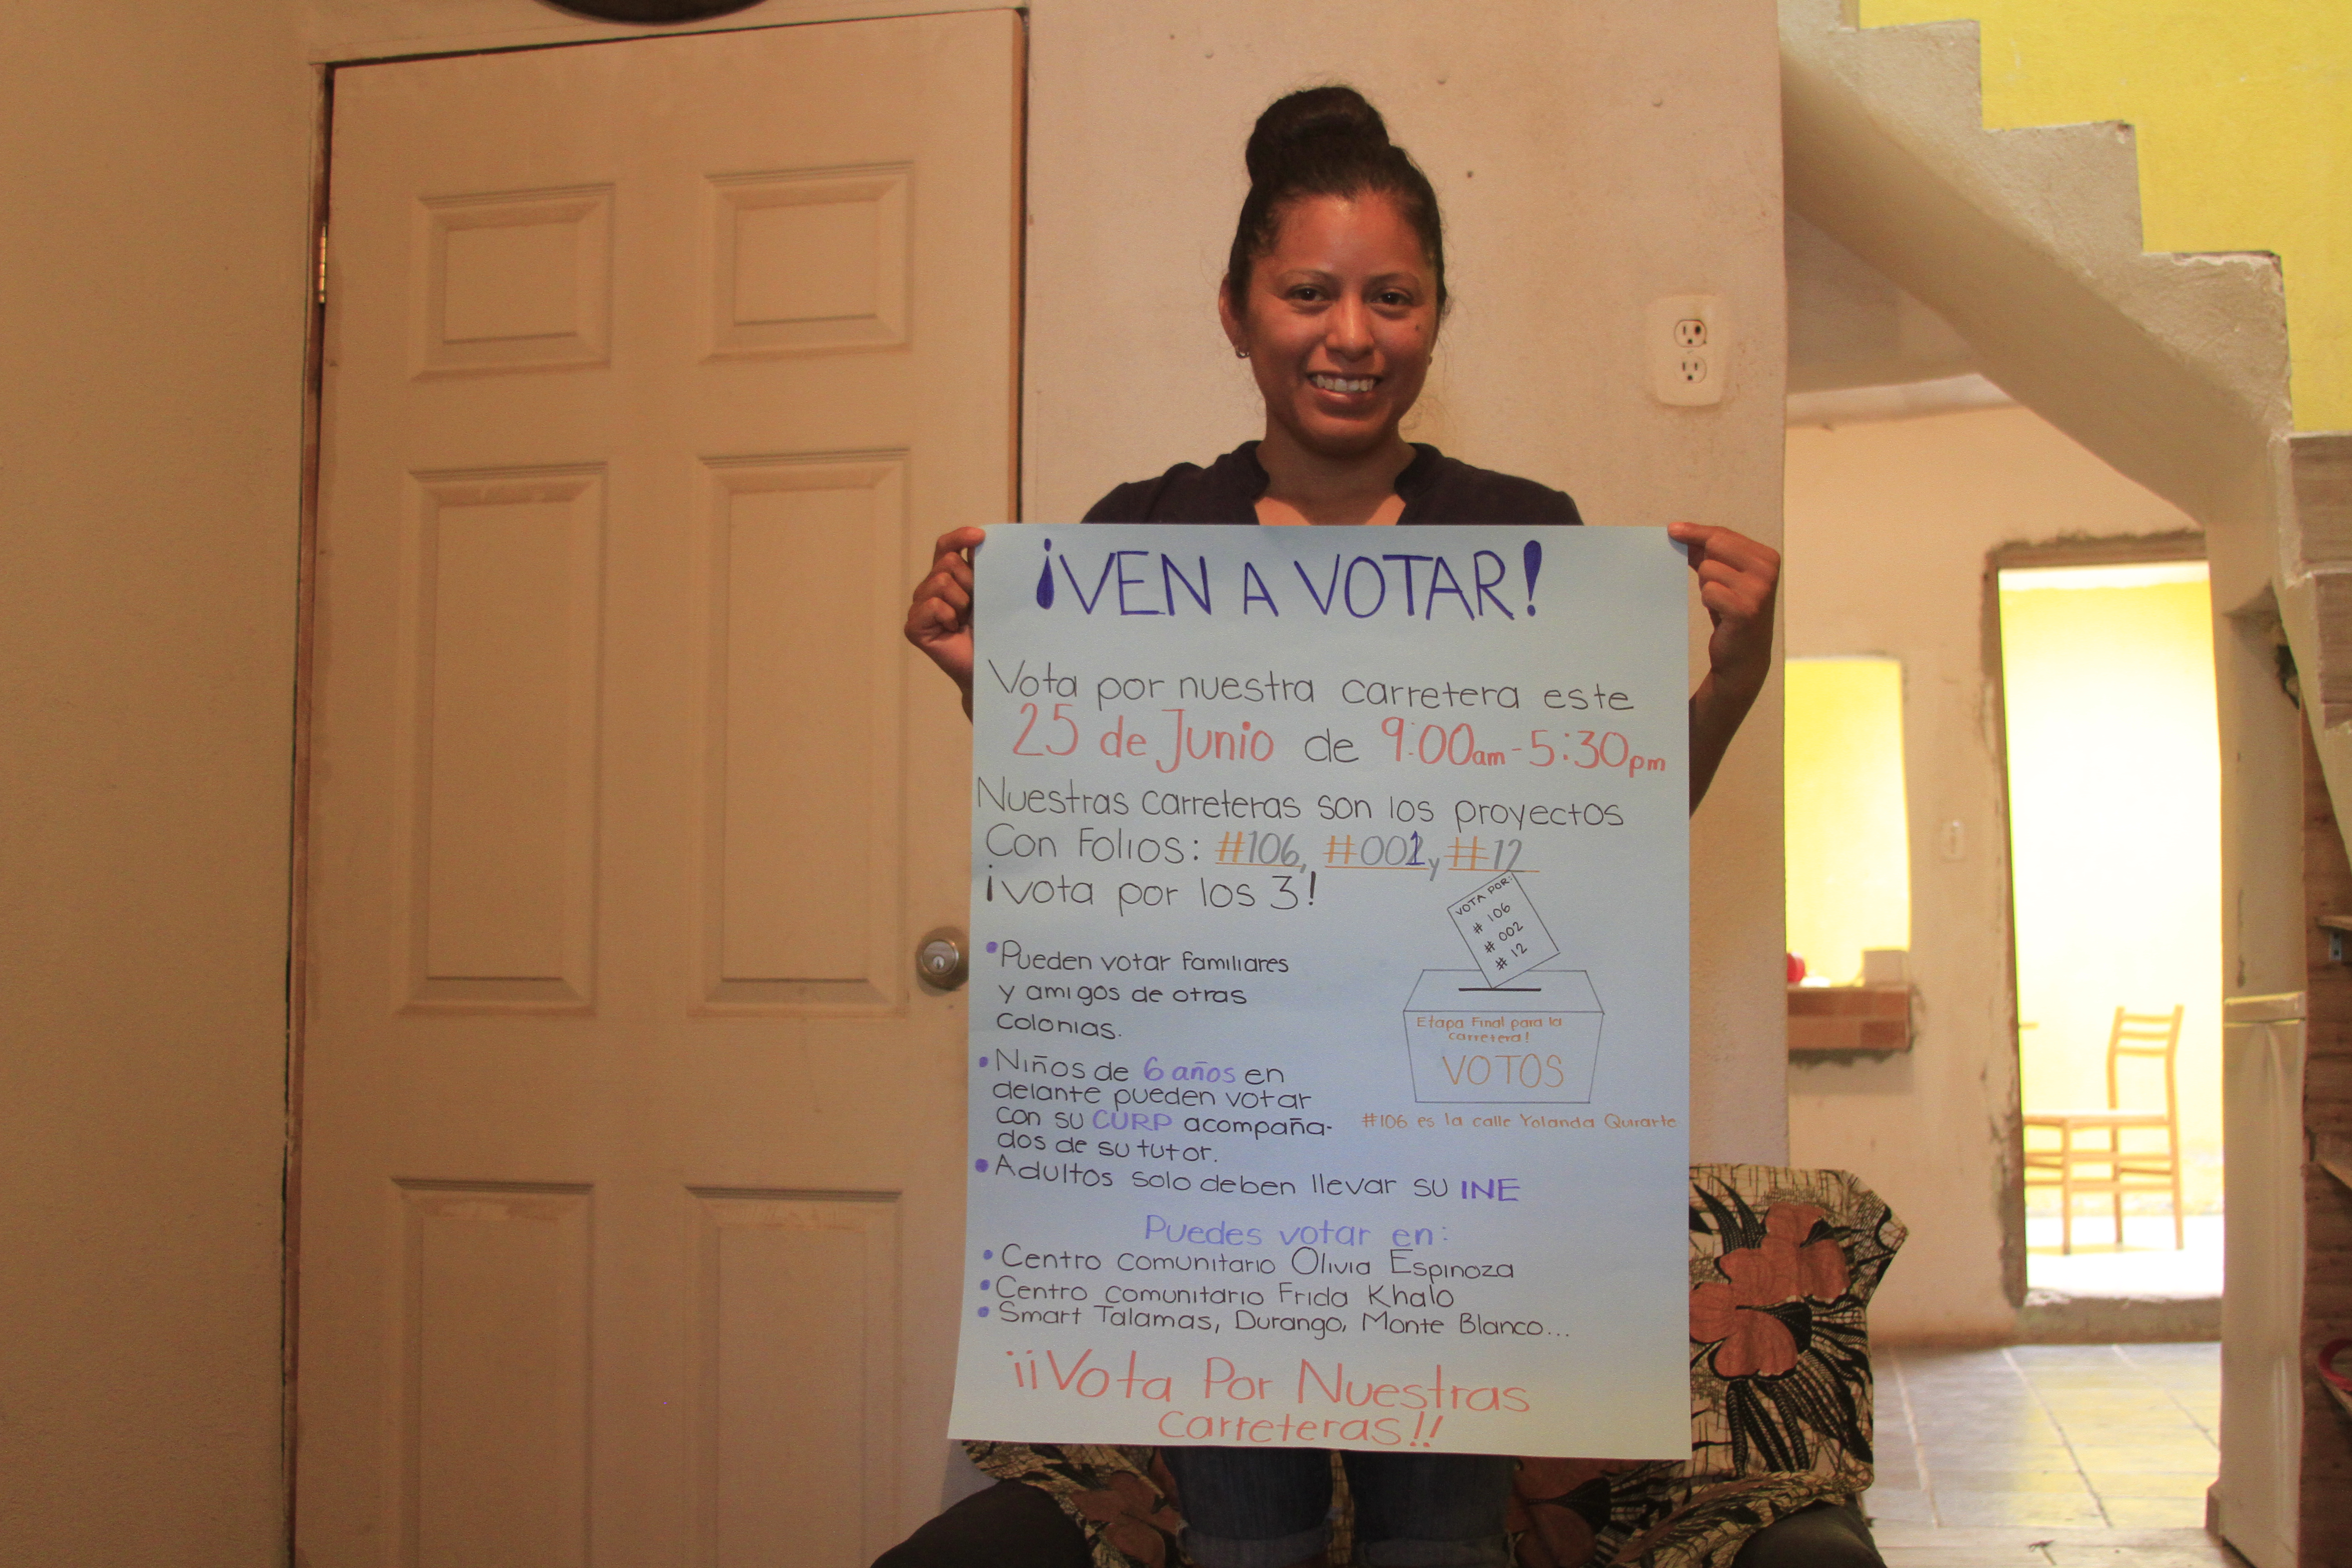 ¡VEN A VOTAR!
Vota por nuestra carretera este
25 de Junio de 9:00am-5:30pm
Nuestras carreteras son los proyectos
Con Folios: #106, #001, y #12
¡vota por los 3!
VOTA POR:
# 106
# 002
# 12
Etapa Final para la
carretera!
VOTOS
#106 es la calle Yolanda Quirarte
• Pueden votar familiares
y amigos de otras
colonias.
• Niños de 6 años en
delante pueden votar
con su CURP acompaña-
dos de su tutor.
• Adultos solo deben llevar su INE
Puedes votar en:
• Centro comunitario Olivia Espinoza
• Centro comunitario Frida Khalo
• Smart Talamas, Durango, Monte Blanco...
¡¡Vota Por Nuestras
carreteras!!